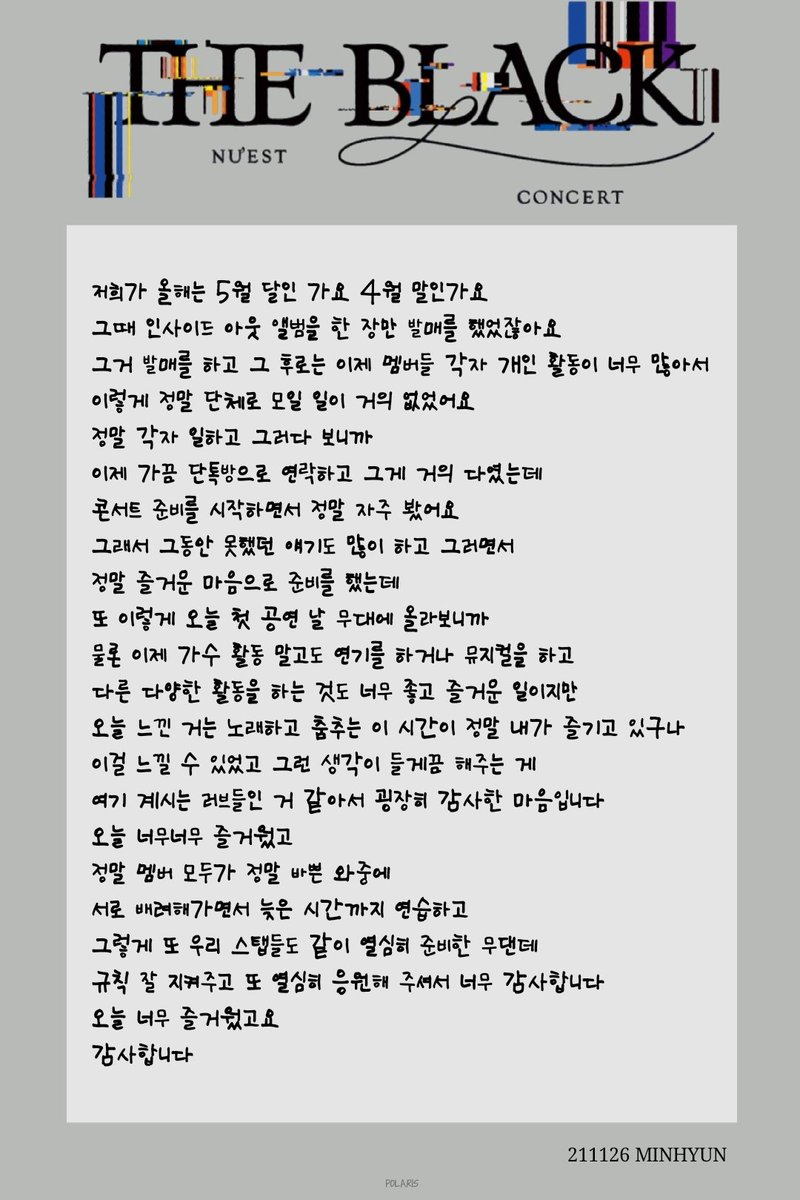 THE BLACK
NU'EST
CONCERT
저희가 올해는 5월 달인 가요 4월 말인가요
그때 인사이드 아웃 앨범을 한 장만 발매를 했었잖아요
그거 발매를 하고 그 후로는 이제 멤버들 각자 개인 활동이 너무 많아서
이렇게 정말 단체로 모일 일이 거의 없었어요
정말 각자 일하고 그러다 보니까
이제 가끔 단톡방으로 연락하고 그게 거의 다였는데
콘서트 준비를 시작하면서 정말 자주 봤어요
그래서 그동안 못했던 얘기도 많이 하고 그러면서
정말 즐거운 마음으로 준비를 했는데
또 이렇게 오늘 첫 공연 날 무대에 올라보니까
물론 이제 가수 활동 말고도 연기를 하거나 뮤지컬을 하고
다른 다양한 활동을 하는 것도 너무 좋고 즐거운 일이지만
오늘 느낀 거는 노래하고 춤추는 이 시간이 정말 내가 즐기고 있구나
이걸 느낄 수 있었고 그런 생각이 들게끔 해주는 게
여기 계시는 러브들인 거 같아서 굉장히 감사한 마음입니다
오늘 너무너무 즐거웠고
정말 멤버 모두가 정말 바쁜 와중에
서로 배려해가면서 늦은 시간까지 연습하고
그렇게 또 우리 스탭들도 같이 열심히 준비한 무댄데
규칙 잘 지켜주고 또 열심히 응원해 주셔서 너무 감사합니다
오늘 너무 즐거웠고요
감사합니다
211126 MINHYUN
POLARIS